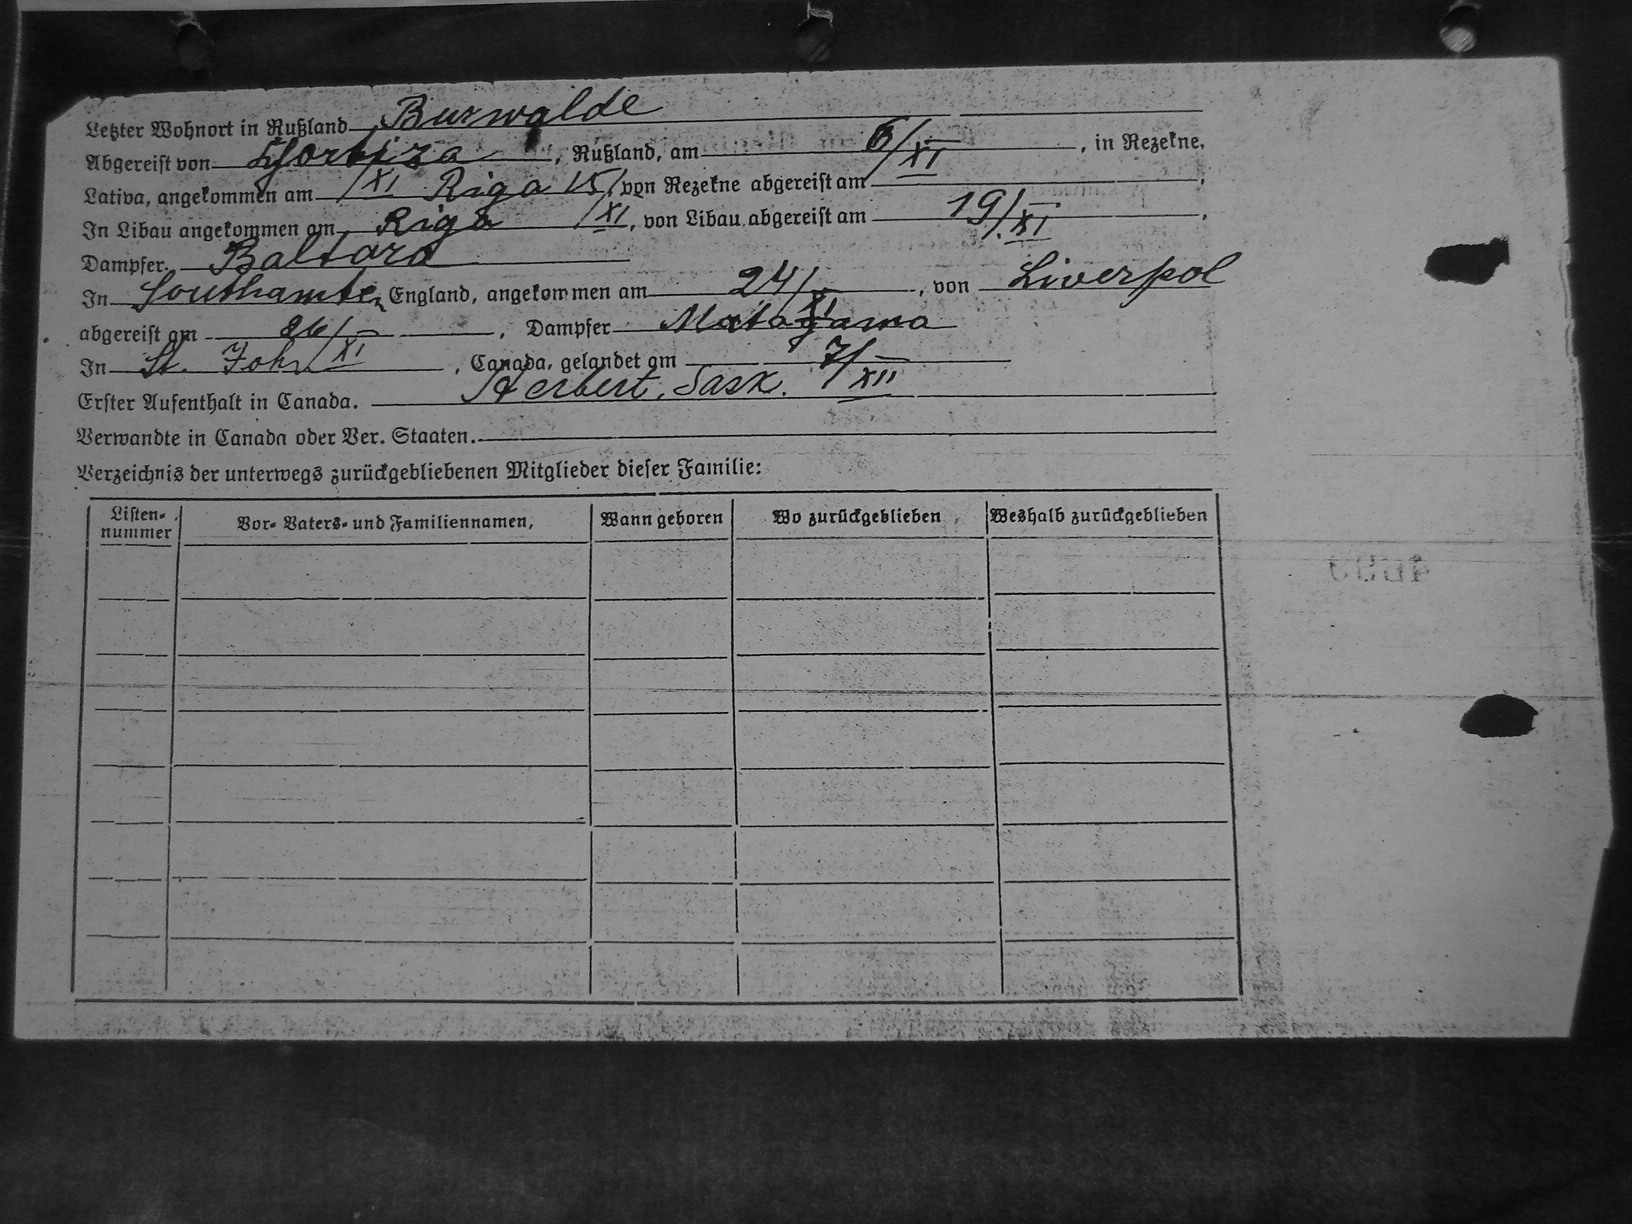 Letzter Wohnort in Rußland Burwalde
Abgereist von Chortiza, Rußland, am 6/XI, in Rezekne,
Lativa, angekommen am /XI Riga 15/ von Rezekne abgereist am
In Libau angekommen am Riga /XI, von Libau abgereist am 19/XI.
Dampfer. Baltara
In Southamte, England, angekommen am 24/XI, von Liverpol
abgereist am 26/XI, Dampfer Matagama
In St. John, Canada, gelandet am 7/XII
Erster Aufenthalt in Canada. Herbert, Sask.
Verwandte in Canada oder Ver. Staaten.
Verzeichnis der unterwegs zurückgebliebenen Mitglieder dieser Familie:
Listen-nummer Vor- Vaters- und Familiennamen, Wann geboren Wo zurückgeblieben Weshalb zurückgeblieben